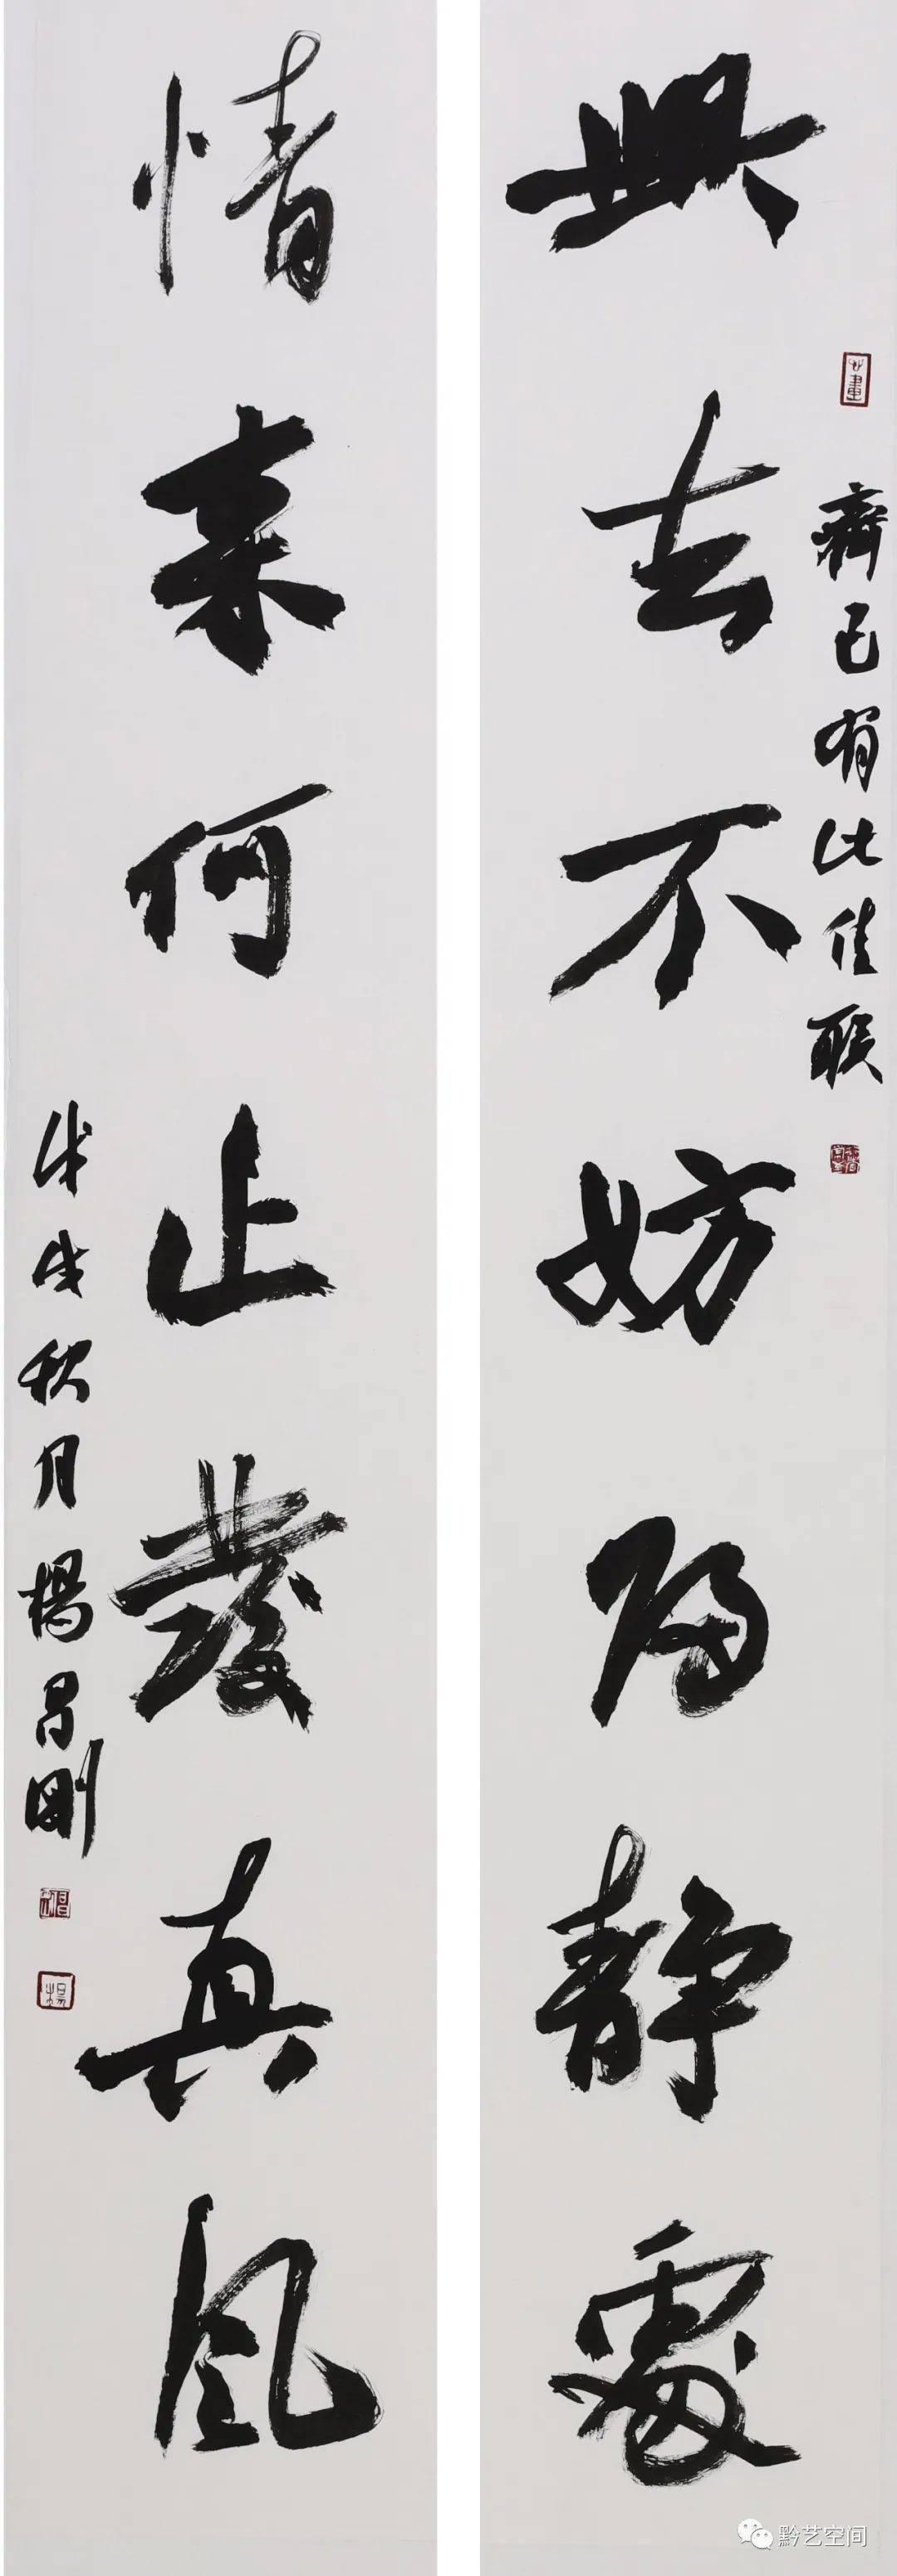 興去不妨歸静處
齊己有此佳联
情来何止發真風
戊戌秋月楊昌剛
黔艺空间